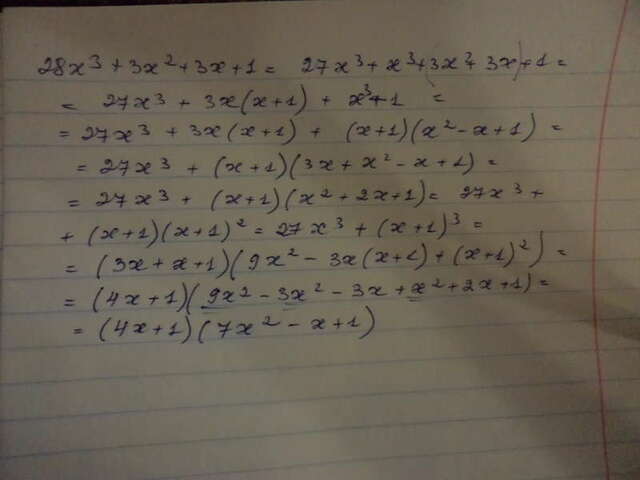 28x³ + 3x² + 3x + 1 = 27x³ + x³ + (3x² + 3x) + 1 =
= 27x³ + 3x(x+1) + x³+1 =
= 27x³ + 3x(x+1) + (x+1)(x² - x + 1) =
= 27x³ + (x+1)(3x + x² - x + 1) =
= 27x³ + (x+1)(x² + 2x + 1) = 27x³ +
+ (x+1)(x+1)² = 27x³ + (x+1)³ =
= (3x + x + 1)(9x² - 3x(x+1) + (x+1)²) =
= (4x+1)(9x² - 3x² - 3x + x² + 2x + 1) =
= (4x+1)(7x² - x + 1)